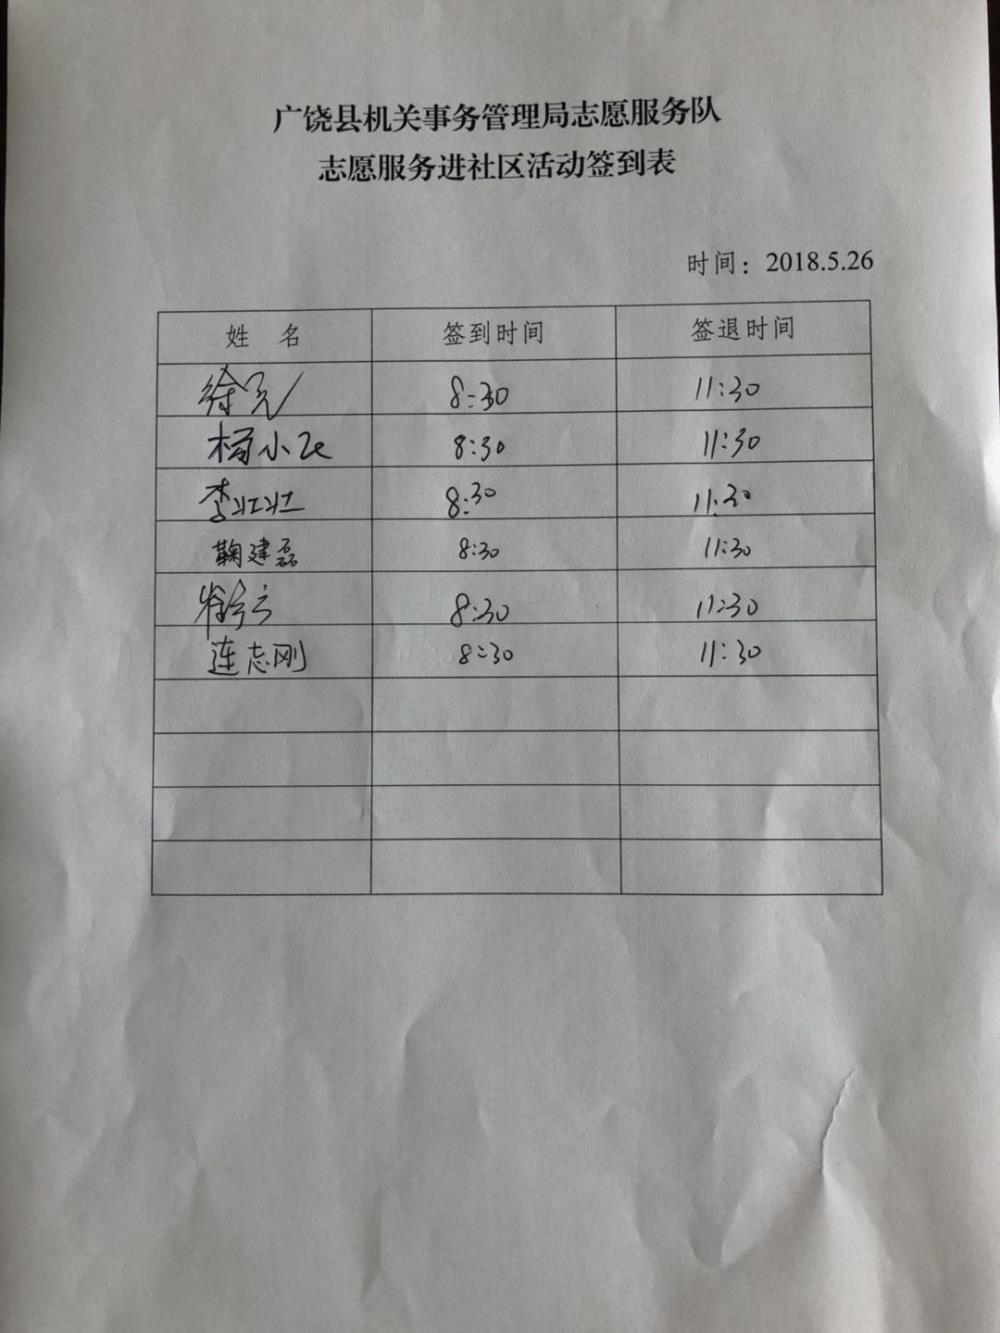 广饶县机关事务管理局志愿服务队
志愿服务进社区活动签到表
时间：2018.5.26
姓 名 签到时间 签退时间
徐亮 8:30 11:30
杨小飞 8:30 11:30
李壮壮 8:30 11:30
鞠建磊 8:30 11:30
8:30 11:30
连志刚 8:30 11:30